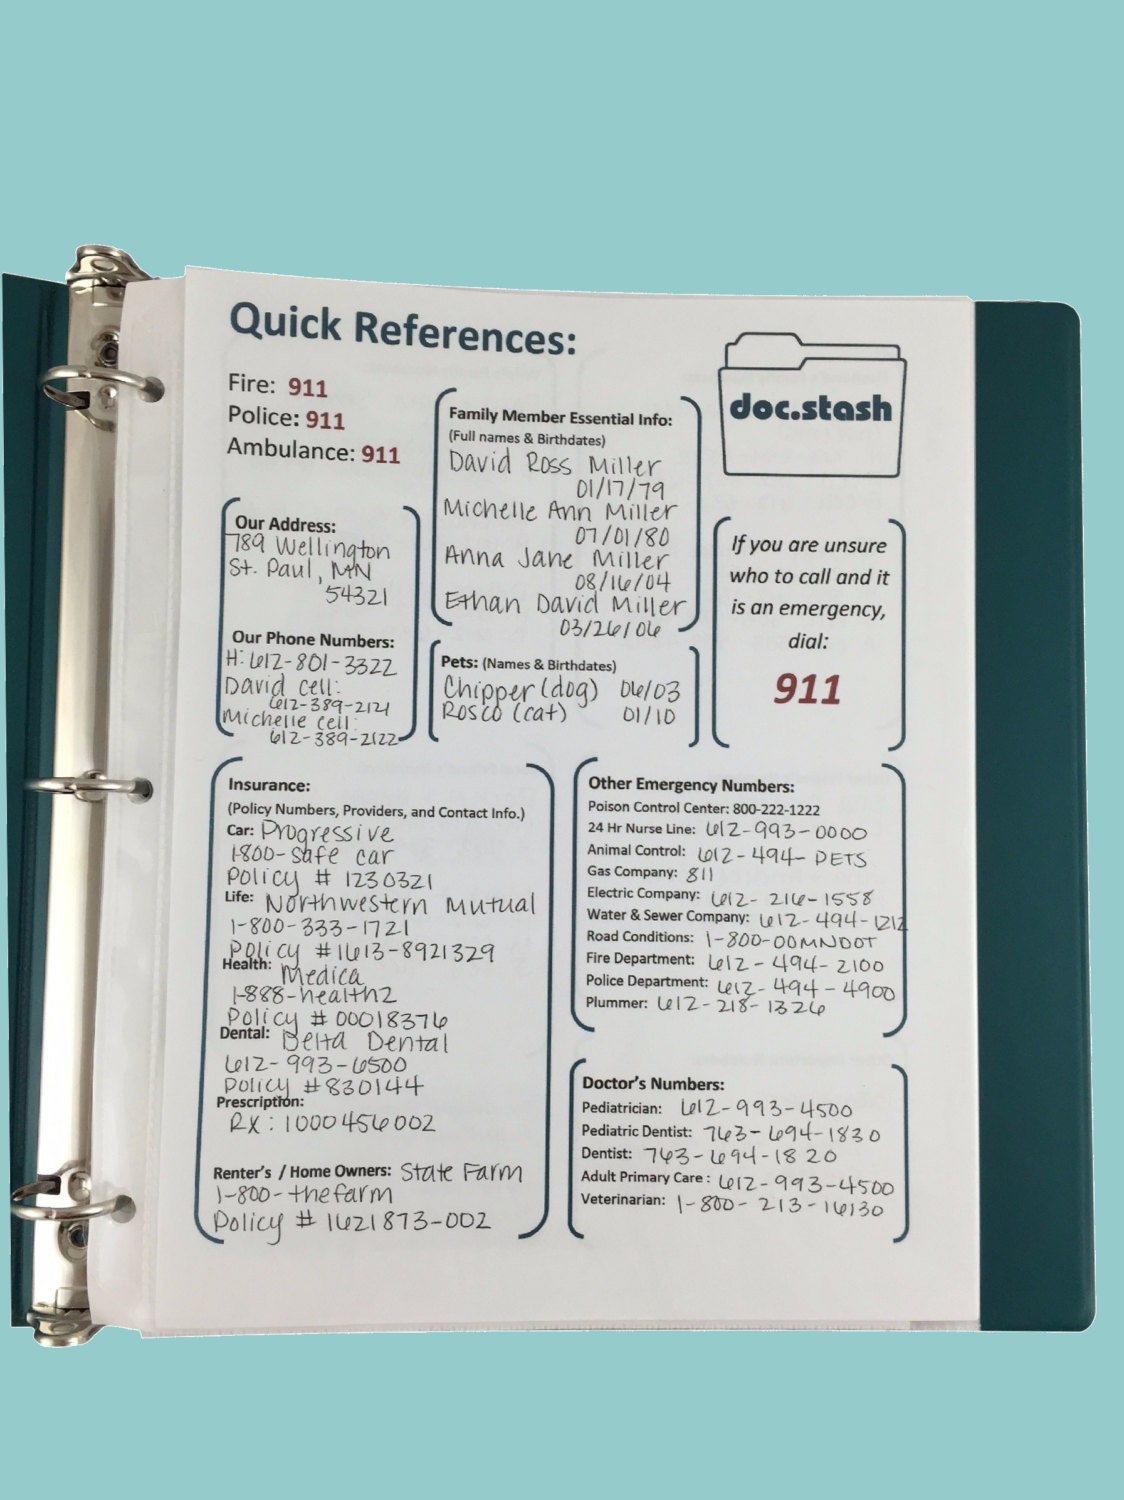 Quick References:
Fire: 911
Police: 911
Ambulance: 911
Our Address:
789 Wellington
St. Paul, MN
54321
Our Phone Numbers:
H: 612-801-3322
David cell:
612-389-2121
Michelle cell:
612-389-2122
Family Member Essential Info:
(Full names & Birthdates)
David Ross Miller
01/17/79
Michelle Ann Miller
07/01/80
Anna Jane Miller
08/16/04
Ethan David Miller
03/26/06
Pets: (Names & Birthdates)
Chipper (dog) 06/03
Rosco (cat) 01/10
doc.stash
If you are unsure
who to call and it
is an emergency,
dial:
911
Insurance:
(Policy Numbers, Providers, and Contact Info.)
Car: Progressive
1-800-safe car
Policy # 1230321
Life: Northwestern Mutual
1-800-333-1721
Policy #1613-8921329
Health: Medica
1-888-health2
Policy #00018376
Dental: Delta Dental
612-993-6500
Policy #830144
Prescription:
RX: 1000456002
Renter's / Home Owners: State Farm
1-800-thefarm
Policy # 1621873-002
Other Emergency Numbers:
Poison Control Center: 800-222-1222
24 Hr Nurse Line: 612-993-0000
Animal Control: 612-494-PETS
Gas Company: 811
Electric Company: 612-216-1558
Water & Sewer Company: 612-494-1212
Road Conditions: 1-800-00MNDOT
Fire Department: 612-494-2100
Police Department: 612-494-4900
Plummer: 612-218-1326
Doctor's Numbers:
Pediatrician: 612-993-4500
Pediatric Dentist: 763-694-1830
Dentist: 763-694-1820
Adult Primary Care: 612-993-4500
Veterinarian: 1-800-213-16130